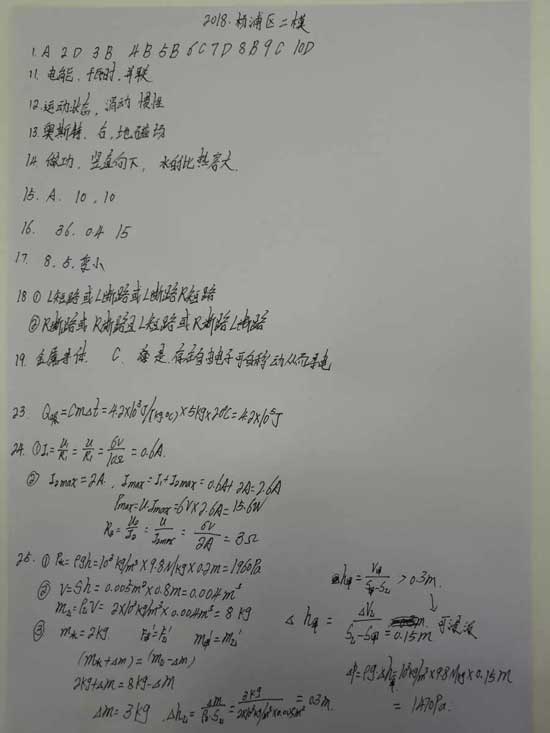 2018. 杨浦区二模
1. A 2 D 3 B 4 B 5 B 6 C 7 D 8 B 9 C 10 D
11. 电能、千瓦时、并联
12. 运动状态, 滑动 惯性
13. 奥斯特、右, 地磁场
14. 做功, 竖直向下, 水的比热容大
15. A. 10, 10
16. 36. 0.4 15
17. 8. 5. 变小
18 ① L短路或L断路或L断路R短路
② R断路或R断路且L短路或R断路L断路
19. 金属导体. C. 是. 存在自由电子可自由移动从而导电
23. Q吸=Cm△t=4.2×10³J/(kg·℃)×5kg×20℃=4.2×10⁵J
24. ① I₁=U₁/R₁=U/R₁=6V/10Ω=0.6A.
② I₂max=2A. Imax=I₁+I₂max=0.6A+2A=2.6A
Pmax=U·Imax=6V×2.6A=15.6W
R₂=U₂/I₂=U/I₂max=6V/2A=3Ω
25. ① P水=ρgh=10³kg/m³×9.8N/kg×0.2m=1960Pa
② V=Sh=0.005m²×0.8m=0.004m³
m乙=ρ乙V=2×10³kg/m³×0.004m³=8kg
③ m水=2kg. F甲'=F乙' m甲'=m乙'
(m水+△m)=(m乙-△m)
2kg+△m=8kg-△m
△m=3kg. △h乙=△m/ρ乙·S乙=3kg/2×10³kg/m³×0.005m²=0.3m.
h甲=V甲/S甲-S乙>0.3m.
↓可浸没
△h甲=△V乙/S乙-S甲=0.15m
△P=ρg△h甲=10³kg/m³×9.8N/kg×0.15m
=1470Pa.